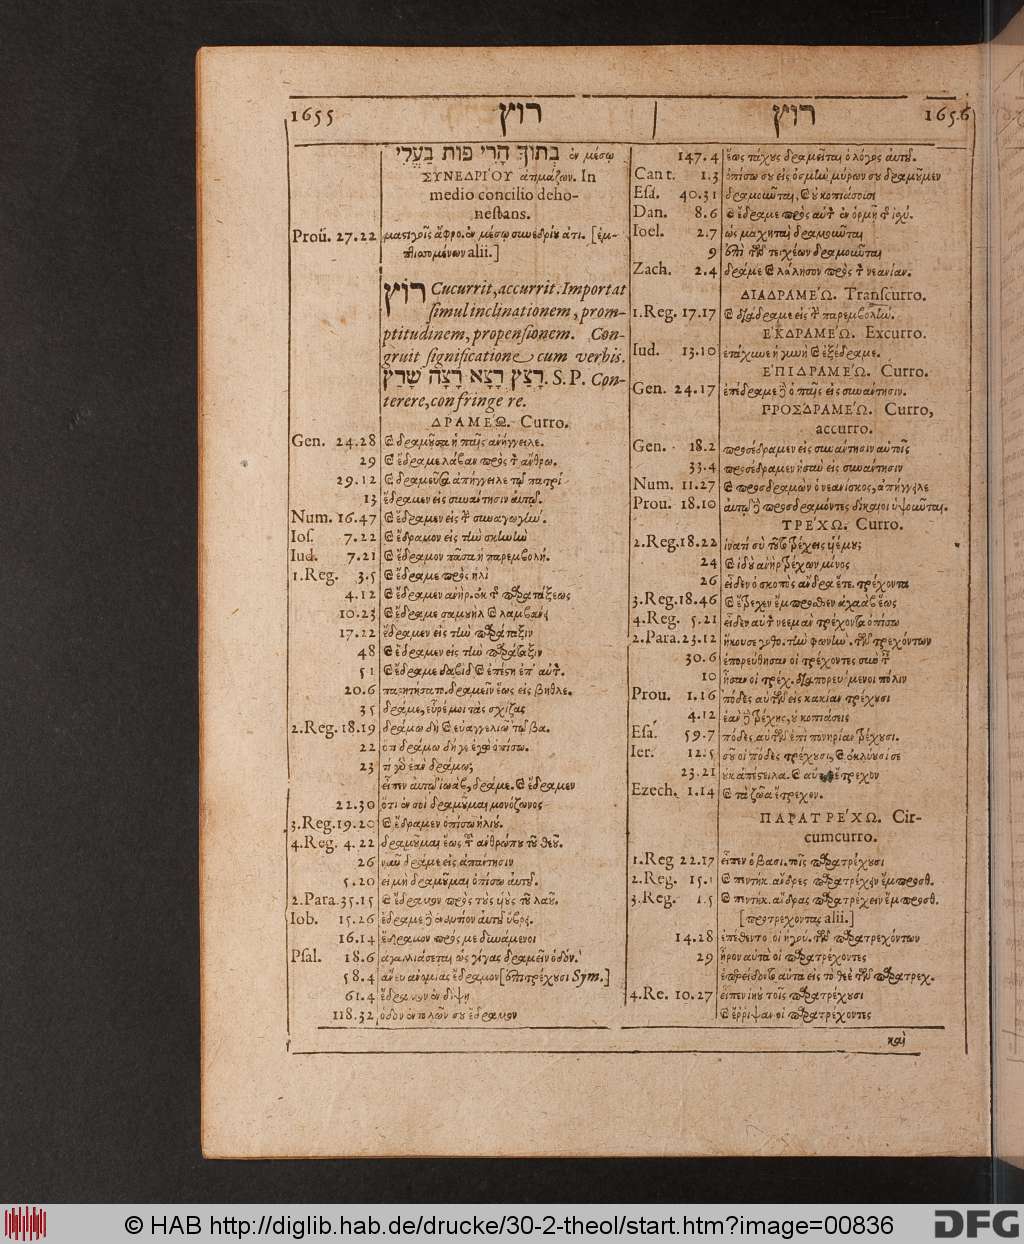 1655 רוץ
רוץ 1656
בְּתוֹךְ הָרִי פוּת בַּעֲלֵי ἐν μέσῳ
ΣΥΝΕΔΡΙΌΥ ἀτιμάζων. In
medio concilio deho-
nestans.
Prou. 27.22 ἐν μέσῳ συνεδρίου ἀτι.
alii.]
רוּץ Cucurrit, accurrit. Importat
simul inclinationem, prom-
ptitudinem, propensionem. Con-
gruit significatione cum verbis.
רָצַץ רָצָא רָצָה שָׁרַץ. S. P. Con-
terere, confringere.
ΔΡΑΜΕΏ. Curro.
Gen. 24.28 καὶ δραμοῦσα ἡ παῖς ἀνήγγειλε.
29 καὶ ἔδραμε λάβαν πρὸς τ ἄνθρω.
29.12 καὶ δραμοῦσα ἀπήγγειλε τῷ πατρί
13 ἔδραμεν εἰς συνάντησιν αὐτῷ.
Num. 16.47 καὶ ἔδραμεν εἰς τ συναγωγήν.
Ios. 7.22 καὶ ἔδραμον εἰς τὴν σκηνὴν
Iud. 7.21 καὶ ἔδραμον πᾶσα ἡ παρεμβολή.
1.Reg. 3.5 καὶ ἔδραμε πρὸς ἡλὶ
4.12 καὶ ἔδραμεν ἀνὴρ. ἐκ τ παρατάξεως
10.23 καὶ ἔδραμε σαμουὴλ καὶ λαμβάνει
17.22 ἔδραμεν εἰς τὴν παράταξιν
48 καὶ ἔδραμεν εἰς τὴν παράταξιν
51 καὶ ἔδραμε δαβὶδ καὶ ἐπέστη ἐπ' αὐτ.
20.6 δραμεῖν ἕως εἰς βηθλε.
35 δράμε, εὗρέ μοι τὰς σχίζας
2.Reg. 18.19 δράμω δὴ καὶ εὐαγγελιῶ τῷ βα.
22 ὅτι δράμω δή γε ἐγὼ ὀπίσω.
23 τί γὸ ἐὰν δράμω;
εἶπεν αὐτῷ ἰωὰβ, δράμε. καὶ ἔδραμεν
22.30 ὅτι ἐν σοὶ δραμοῦμαι μονόζωνος
3.Reg. 19.20 καὶ ἔδραμεν ὀπίσω ἡλιού.
4.Reg. 4.22 δραμοῦμαι ἕως τ ἀνθρώπου τοῦ θεοῦ.
26 νῦν δράμε εἰς ἀπάντησιν
5.20 εἰ μὴ δραμοῦμαι ὀπίσω αὐτοῦ.
2.Para. 35.15
Iob. 15.26 ἔδραμε δὲ ἐναντίον αὐτοῦ ὕβρει.
16.14 ἔδραμον πρός με δυνάμενοι
Psal. 18.6 ἀγαλλιάσεται ὡς γίγας δραμεῖν ὁδόν.
58.4 ἄνευ ἀνομίας ἔδραμον [ἐπιτρέχουσι Sym.]
61.4 ἔδραμον ἐν δίψῃ
118.32 ὁδὸν ἐντολῶν σου ἔδραμον
147.4 ἕως τάχους δραμεῖται ὁ λόγος αὐτοῦ.
Cant. 1.3 ὀπίσω σου εἰς ὀσμὴν μύρων σου δραμοῦμεν
Esa. 40.31 δραμοῦνται, καὶ οὐ κοπιάσουσι
Dan. 8.6 καὶ ἔδραμε πρὸς αὐτ ἐν ὁρμῇ τ ἰσχύ.
Ioel. 2.7 ὡς μαχηταὶ δραμοῦνται
9 ἐπὶ τῶν τειχέων δραμοῦνται
Zach. 2.4 δράμε καὶ λάλησον πρὸς τ νεανίαν.
ΔΙΑΔΡΑΜΕΏ. Transcurro.
1.Reg. 17.17 καὶ διάδραμε εἰς τ παρεμβολήν.
ΕΚΔΡΑΜΕΏ. Excurro.
Iud. 13.10 ἐτάχυνε ἡ γυνὴ καὶ ἐξέδραμε.
ΕΠΙΔΡΑΜΕΏ. Curro.
Gen. 24.17 ἐπέδραμε δὲ ὁ παῖς εἰς συνάντησιν.
ΠΡΟΣΔΡΑΜΕΏ. Curro,
accurro.
Gen. 18.2 προσέδραμεν εἰς συνάντησιν αὐτοῖς
33.4 προσέδραμεν ἡσαῦ εἰς συνάντησιν
Num. 11.27 καὶ προσδραμὼν ὁ νεανίσκος, ἀπήγγειλε
Prou. 18.10 αὐτῷ δὲ προσδραμόντες δίκαιοι ὑψοῦνται.
ΤΡΈΧΩ. Curro.
2.Reg. 18.22 ἱνατί σὺ τοῦτο τρέχεις υἱέ μου;
24 καὶ ἰδοὺ ἀνὴρ τρέχων μόνος
26 εἶδεν ὁ σκοπὸς ἄνδρα ἕτε. τρέχοντα
3.Reg. 18.46 καὶ ἔτρεχεν ἔμπροσθεν ἀχαὰβ ἕως
4.Reg. 5.21 εἶδεν αὐτ νεεμὰν τρέχοντα ὀπίσω
2.Para. 23.12 ἤκουσε γοθο. τὴν φωνὴν. τῶν τρεχόντων
30.6 ἐπορεύθησαν οἱ τρέχοντες σὺν τ
10 ἦσαν οἱ τρέχ. διαπορευόμενοι πόλιν
Prou. 1.16 πόδες αὐτῶν εἰς κακίαν τρέχουσι
4.12 ἐὰν δὲ τρέχῃς, οὐ κοπιάσεις
Esa. 59.7 πόδες αὐτῶν ἐπὶ πονηρίαν τρέχουσι.
Ier. 12.5 σοῦ οἱ πόδες τρέχουσι, καὶ ἐκλύουσί σε
23.21 οὐκ ἀπέστειλα. καὶ αὐτοὶ ἔτρεχον
Ezech. 1.14 καὶ τὰ ζῶα ἔτρεχον.
ΠΑΡΑΤΡΈΧΩ. Cir-
cumcurro.
1.Reg 22.17 εἶπεν ὁ βασι. τοῖς παρατρέχουσι
2.Reg. 15.1 καὶ πεντήκ. ἄνδρες παρατρέχειν ἔμπροσθ.
3.Reg. 1.5 καὶ πεντήκ. ἄνδρας παρατρέχειν ἔμπροσθ.
[προτρέχοντας alii.]
14.28 ἐπέθεντο οἱ ἡγού. τῶν παρατρεχόντων
29 ᾖρον αὐτὰ οἱ παρατρέχοντες
αὐτὰ εἰς τὸ θεὲ τῶν παρατρεχ.
4.Re. 10.27 εἶπεν ἰηοὺ τοῖς παρατρέχουσι
καὶ ἔῤῥιψαν οἱ παρατρέχοντες
καὶ
© HAB http://diglib.hab.de/drucke/30-2-theol/start.htm?image=00836
DFG